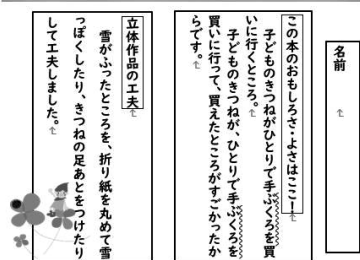 名前
この本のおもしろさ・よさはここ！
子どものきつねがひとりで手ぶくろを買
いに行くところ。
子どものきつねが、ひとりで手ぶくろを
買いに行って、買えたところがすごかったか
らです。
立体作品の工夫
雪がふったところを、折り紙を丸めて雪
っぽくしたり、きつねの足あとをつけたり
して工夫しました。